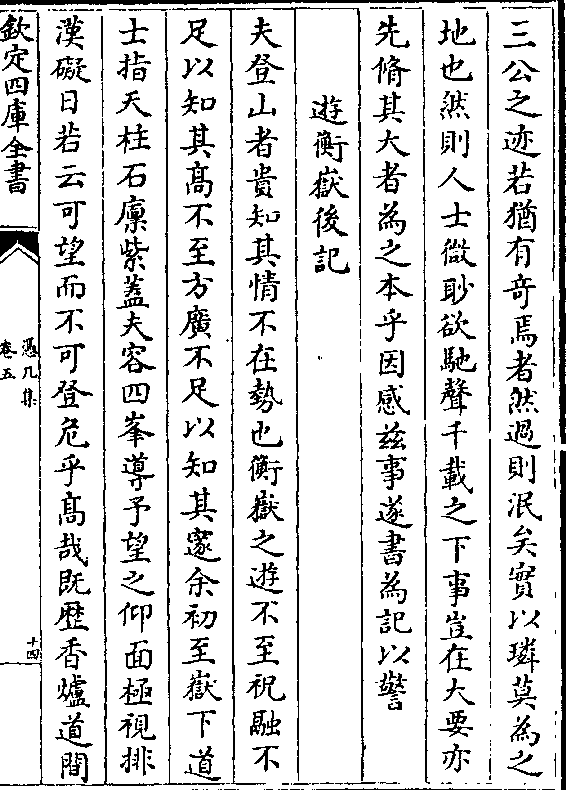 三公之迹若猶有竒焉者然過則泯矣實以璘莫為之
地也然則人士㣲眇欲馳聲千載之下事豈在大要亦
先脩其大者為之本乎因感兹事遂書為記以警
遊衡嶽後記
夫登山者貴知其情不在勢也衡嶽之遊不至祝融不
足以知其髙不至方廣不足以知其邃余初至嶽下道
士指天柱石廪紫蓋夫容四峯導予望之仰面極視排
漢礙日若云可望而不可登危乎髙哉既歴香爐道間
欽定四庫全書
憑几集
卷五
十四